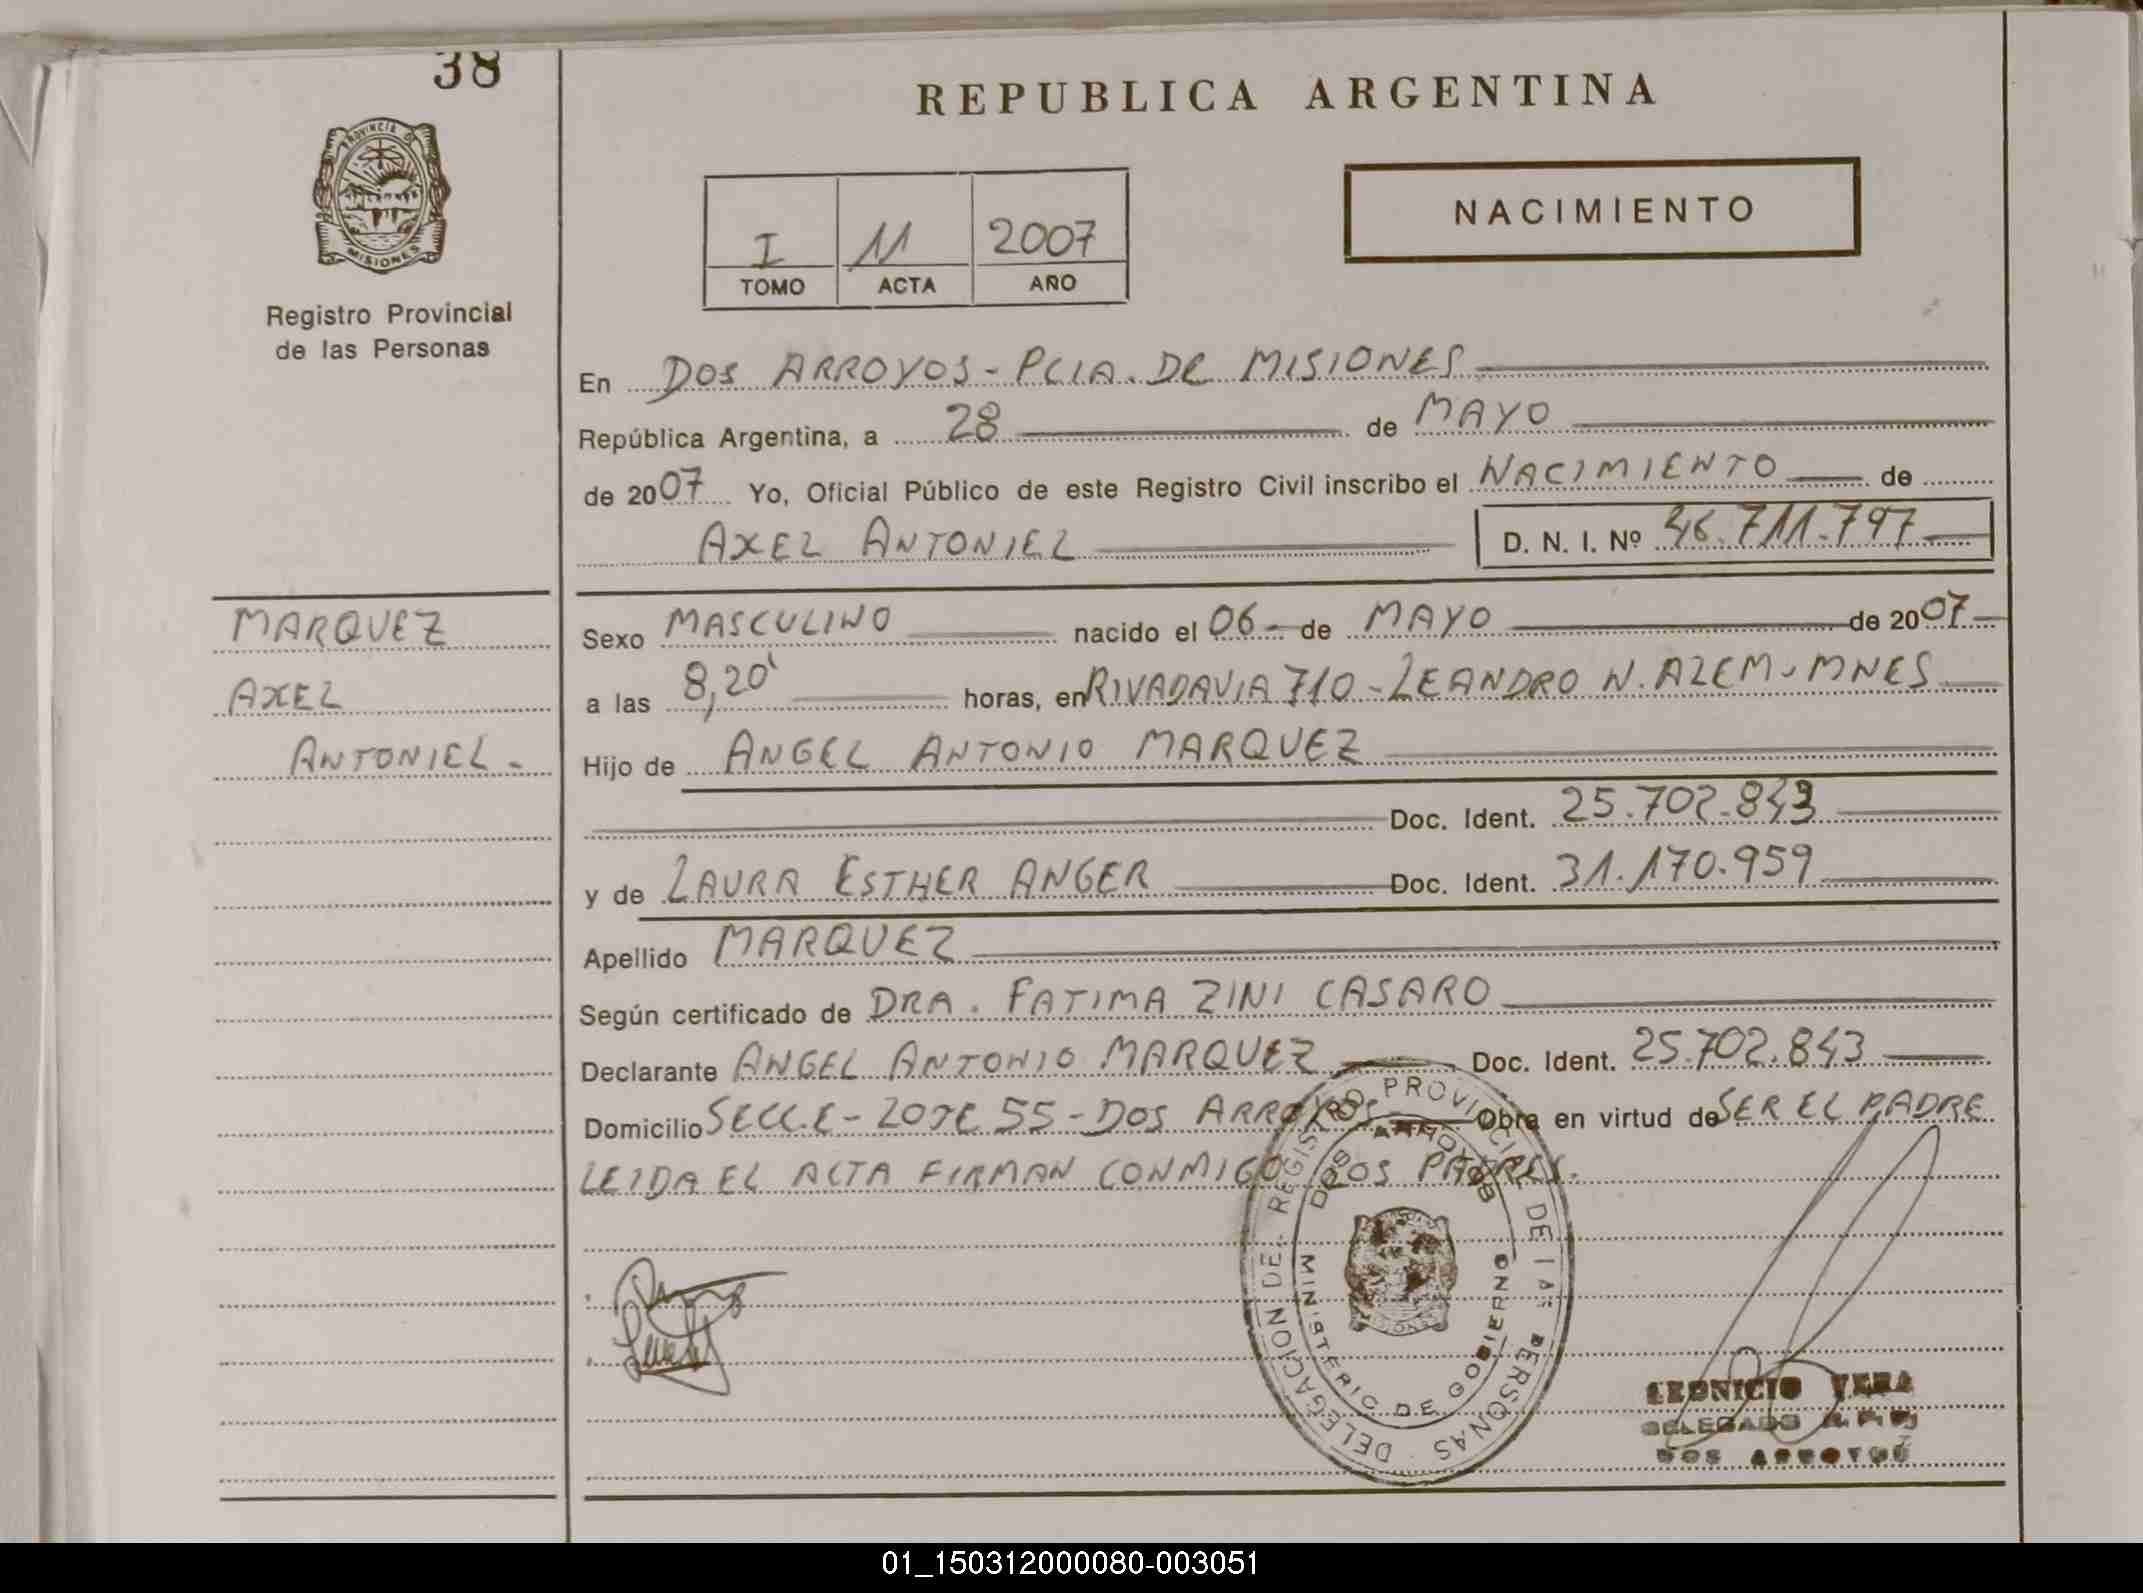 38
PROVINCIA DE
MISIONES
Registro Provincial
de las Personas
REPUBLICA ARGENTINA
I 11 2007
TOMO ACTA AÑO
NACIMIENTO
En DOS ARROYOS - PCIA. DE MISIONES
República Argentina, a 28 de MAYO
de 2007 Yo, Oficial Público de este Registro Civil inscribo el NACIMIENTO de
AXEL ANTONIEL D. N. I. Nº 46.711.797
MARQUEZ
AXEL
ANTONIEL -
Sexo MASCULINO nacido el 06 - de MAYO de 2007
a las 8,20' horas, en RIVADAVIA 710 - LEANDRO N. ALEM - MNES
Hijo de ANGEL ANTONIO MARQUEZ
Doc. Ident. 25.702.843
y de LAURA ESTHER ANGER Doc. Ident. 31.170.959
Apellido MARQUEZ
Según certificado de DRA. FATIMA ZINI CASARO
Declarante ANGEL ANTONIO MARQUEZ Doc. Ident. 25.702.843
Domicilio SECC.E - LOTE 55 - DOS ARROYOS Obra en virtud de SER EL PADRE
LEIDA EL ACTA FIRMAN CONMIGO LOS PADRES.
DELEGACION DE REGISTRO PROVINCIAL DE LAS PERSONAS
DOS ARROYOS
MINISTERIO DE GOBIERNO
LEONICIO VERA
DELEGADO
DOS ARROYOS
01_150312000080-003051